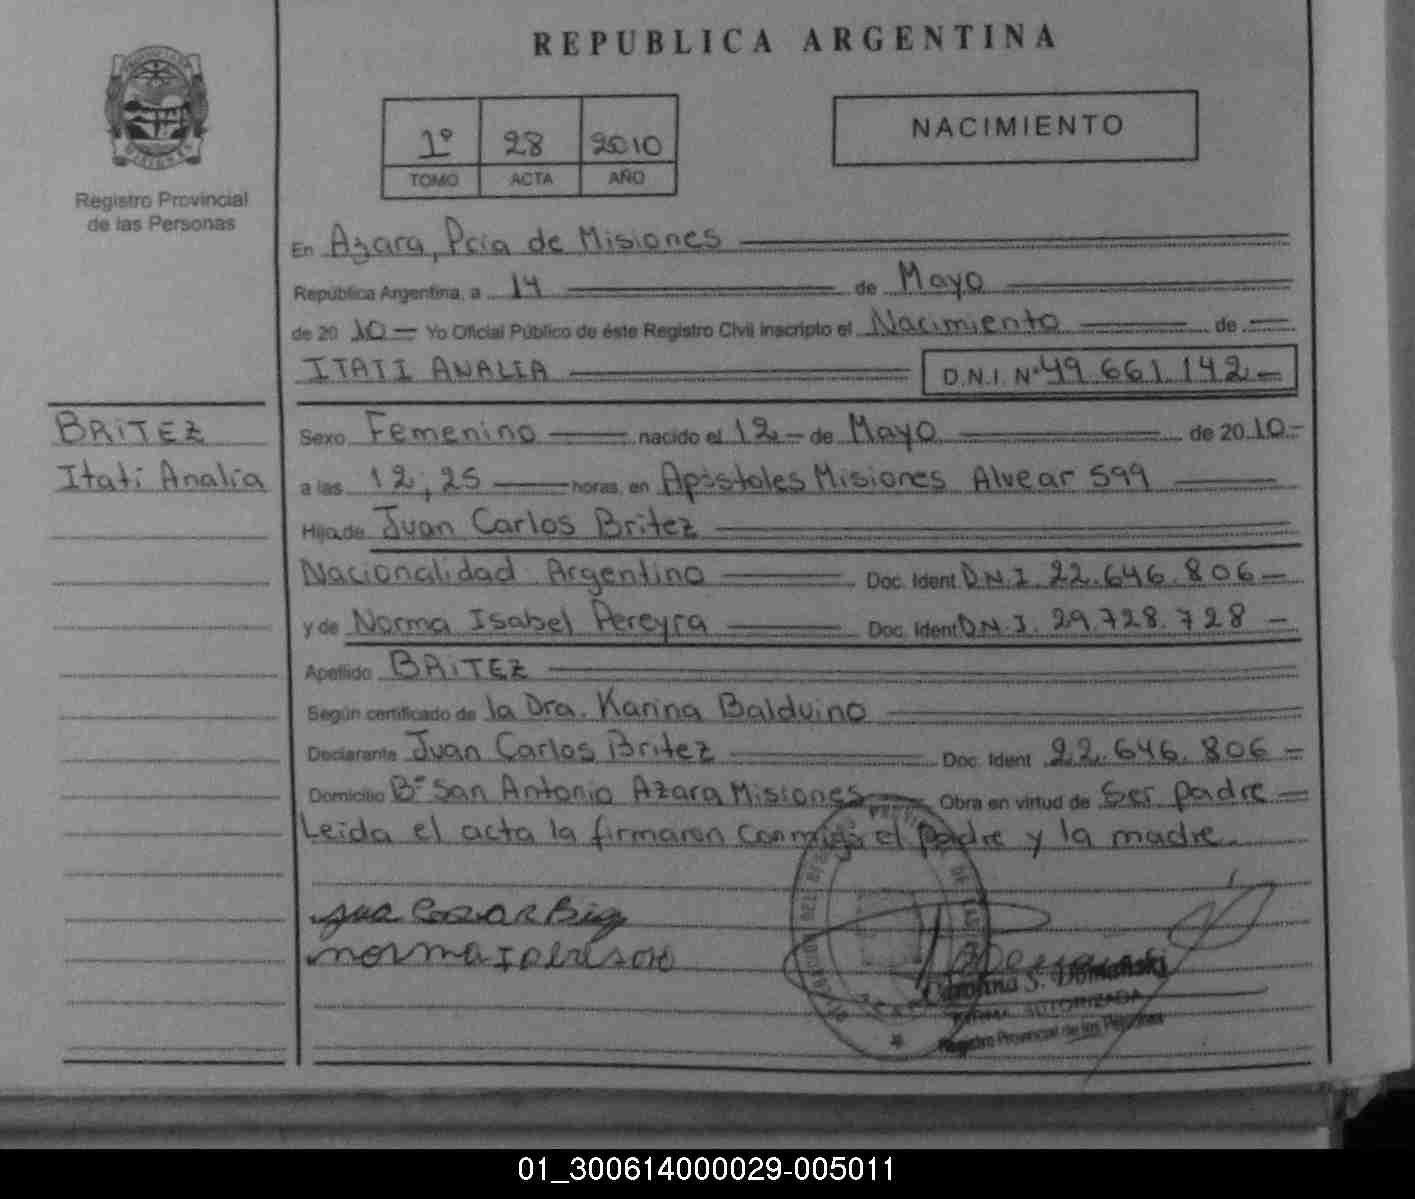 REPUBLICA ARGENTINA
MISIONES
Registro Provincial
de las Personas
1º 28 2010
TOMO ACTA AÑO
NACIMIENTO
En Azara, Pcia de Misiones
República Argentina, a 14 de Mayo
de 20 10 - Yo Oficial Público de éste Registro Civil inscripto el Nacimiento de
ITATI ANALIA D.N.I. Nº 49.661.142-
BRITEZ
Itatí Analía
Sexo Femenino nacido el 12 - de Mayo de 20 10-
a las 12,25 horas, en Apóstoles Misiones Alvear 599
Hija de Juan Carlos Britez
Nacionalidad Argentino Doc. Ident. D.N.I. 22.646.806-
y de Norma Isabel Pereyra Doc. Ident D.N.I. 29.728.728 -
Apellido BRITEZ
Según certificado de la Dra. Karina Balduino
Declarante Juan Carlos Britez Doc. Ident 22.646.806-
Domicilio Bº San Antonio Azara Misiones Obra en virtud de Ser padre
Leida el acta la firmaron conmigo el padre y la madre.
Carolina S. Domanski
FIRMA AUTORIZADA
Registro Provincial de las Personas
01_300614000029-005011